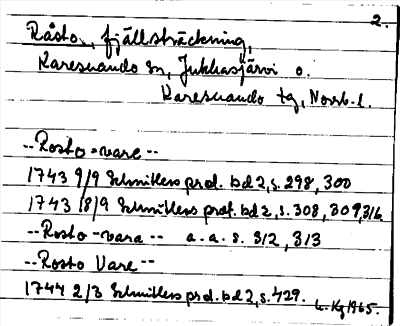 2.
Råsto, fjällsträckning,
Karesuando sn, Jukkasjärvi o.
Karesuando tg, Norrb. l.
-- Rosto-vare --
1743 9/9 Schnitlers prot. bd 2, s. 298, 300
1743 18/9 Schnitlers prot. bd 2, s. 308, 309, 316.
-- Rosto-vara -- a. a. s. 312, 313
-- Rosto Vare --
1744 2/3 Schnitlers prot. bd 2, s. 429.
1965.